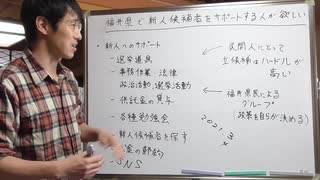 福井県で新人候補者をサポートする人が欲しい
・新人へのサポート
- 選挙道具
- 事務作業 法律
政治活動, 選挙活動
- 供託金の貸与
- 各種勉強会
- 新人候補者を探す
の節約
- SNS
民間人にとって
立候補はハードルが
高い
福井県民による
グループ
(政策を自らが決める)
2021.